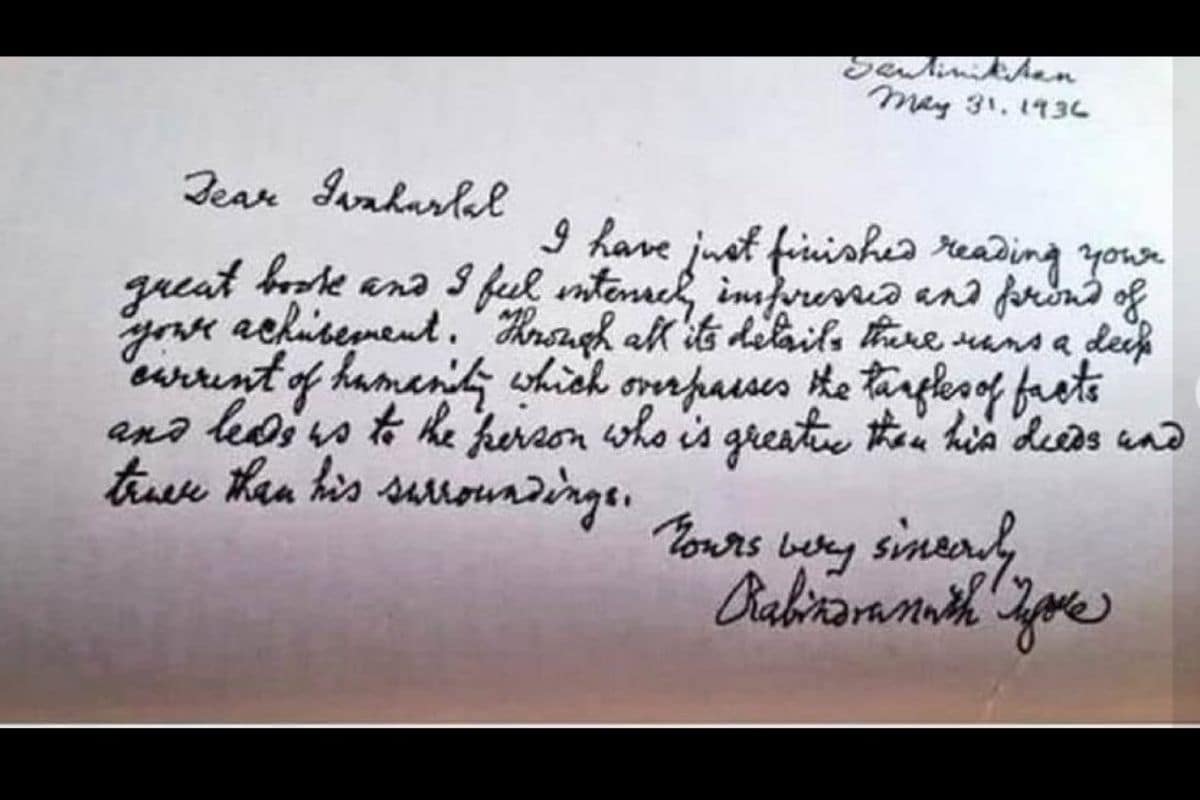 Santiniketan
May 31. 1936
Dear Jawaharlal
I have just finished reading your
great book and I feel intensely impressed and proud of
your achievement. Through all its details there runs a deep
current of humanity which overpasses the tangles of facts
and leads us to the person who is greater than his deeds and
truer than his surroundings.
Yours very sincerely
Rabindranath Tagore